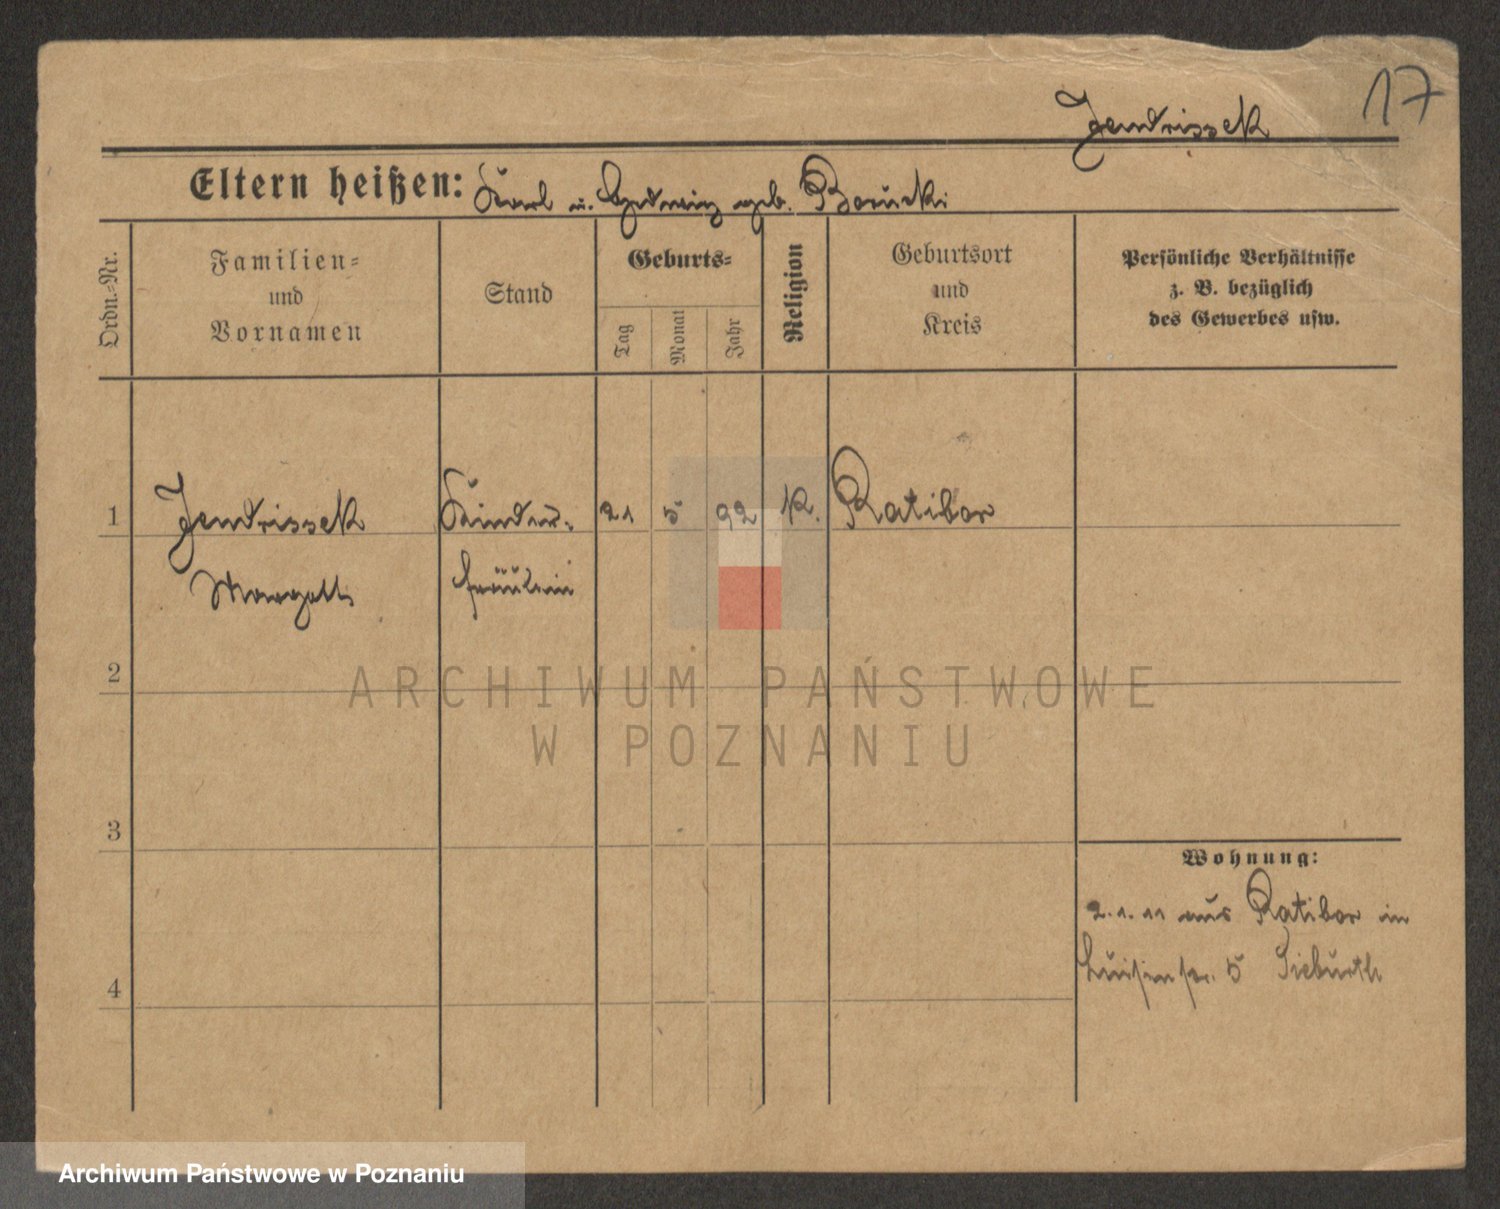 17
Jendrissek
Eltern heißen: Karl u. Hedwig geb. Borucki
Ordn.-Nr.
Familien-
und
Vornamen
Stand
Geburts-
Tag
Monat
Jahr
Religion
Geburtsort
und
Kreis
Persönliche Verhältnisse
z. B. bezüglich
des Gewerbes usw.
1 Jendrissek Kinder- 21 5 92 K. Ratibor
fräulein
2
ARCHIWUM PAŃSTWOWE
W POZNANIU
3
Wohnung:
2.1.11 aus Ratibor in
Luisenstr. 5 Sieburth
4
Archiwum Państwowe w Poznaniu